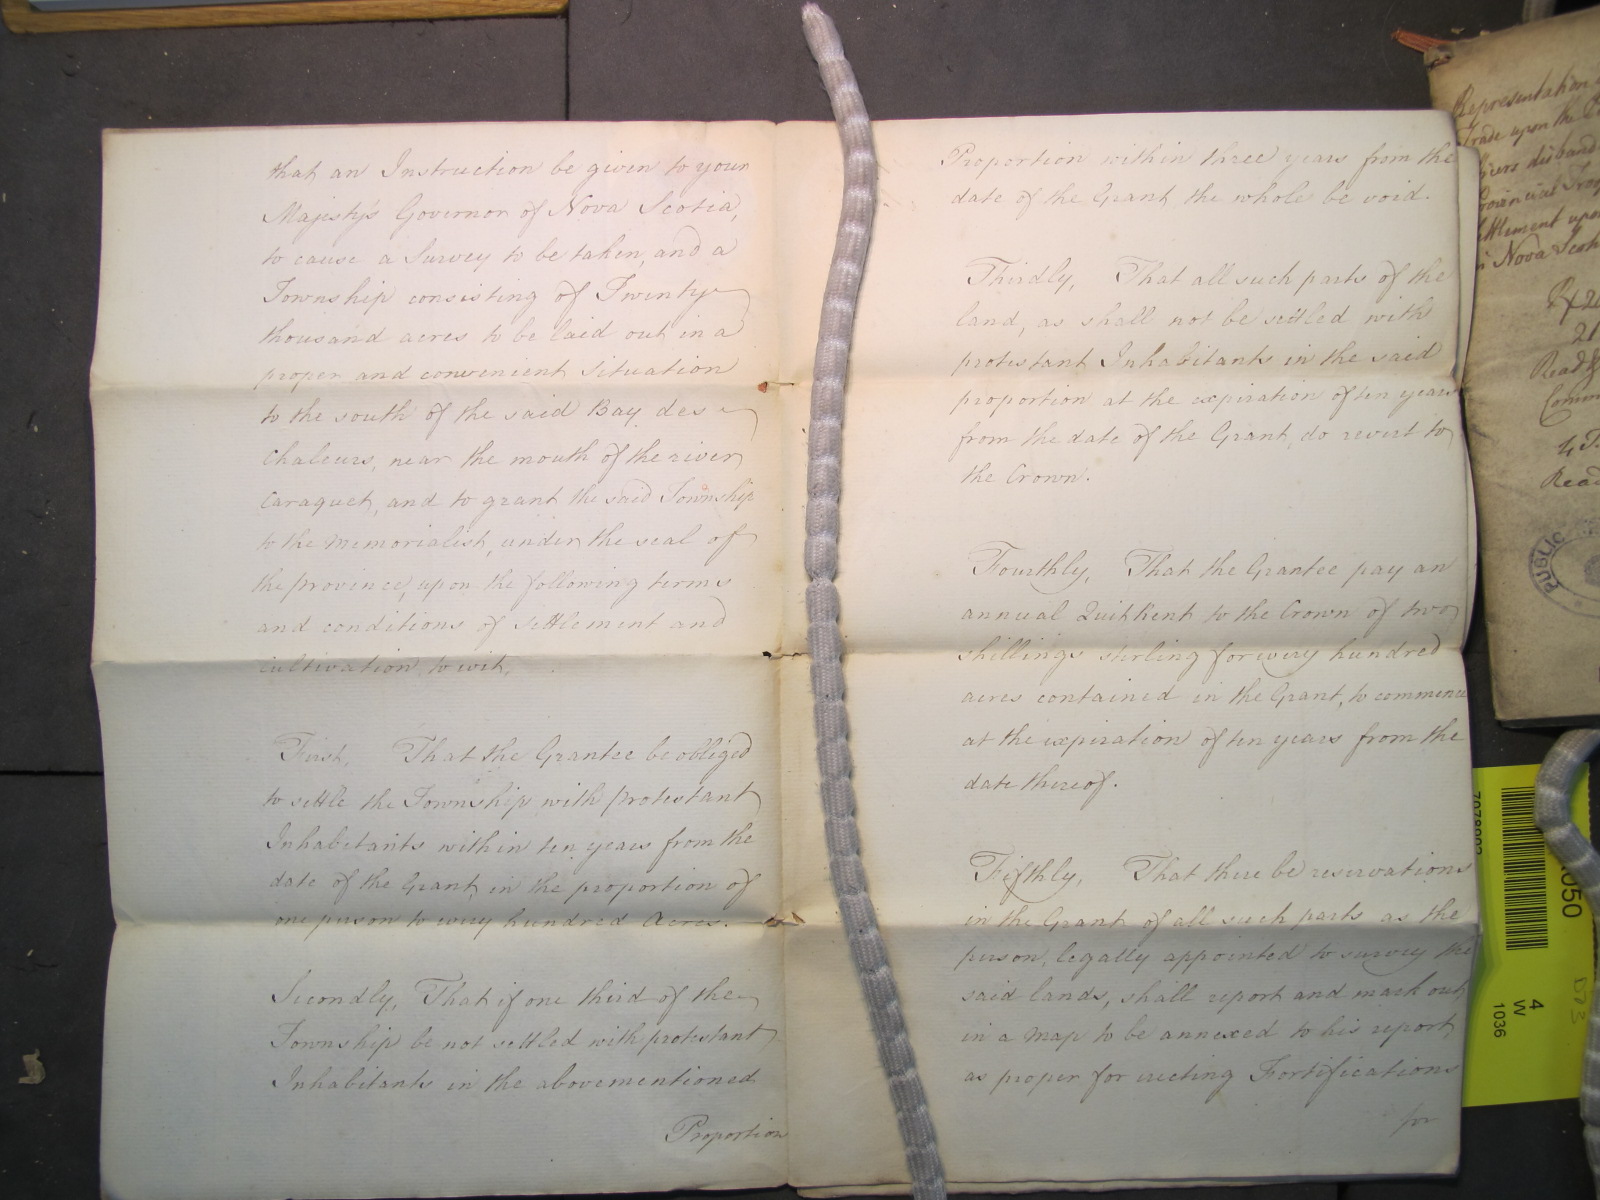 that an Instruction be given to your
Majesty's Governor of Nova Scotia,
to cause a Survey to be taken, and a
Township consisting of Twenty
thousand acres to be laid out in a
proper and convenient Situation
to the south of the said Bay des
Chaleurs, near the mouth of the river
Caraquet, and to grant the said Township
to the Memorialist, under the seal of
the province, upon the following terms
and conditions of settlement and
cultivation, to wit,
First, That the Grantee be obliged
to settle the Township with protestant
Inhabitants within ten years from the
date of the Grant, in the proportion of
one person to every hundred Acres.
Secondly, That if one third of the
Township be not settled with protestant
Inhabitants in the abovementioned
Proportion
Proportion within three years from the
date of the Grant the whole be void.
Thirdly, That all such parts of the
land, as shall not be settled with
protestant Inhabitants in the said
proportion at the expiration of ten years
from the date of the Grant, do revert to
the Crown.
Fourthly, That the Grantee pay an
annual Quit Rent to the Crown of two
shillings sterling for every hundred
acres contained in the Grant, to commence
at the expiration of ten years from the
date thereof.
Fifthly, That there be reservations
in the Grant of all such parts as the
person, legally appointed to survey the
said lands, shall report and mark out
in a Map to be annexed to his report,
as proper for erecting Fortifications
for
Representation
Trade upon the
disband
Provincial
Settlement upon
in Nova Scotia
21
Read
Read
PUBLIC
4
W
1036